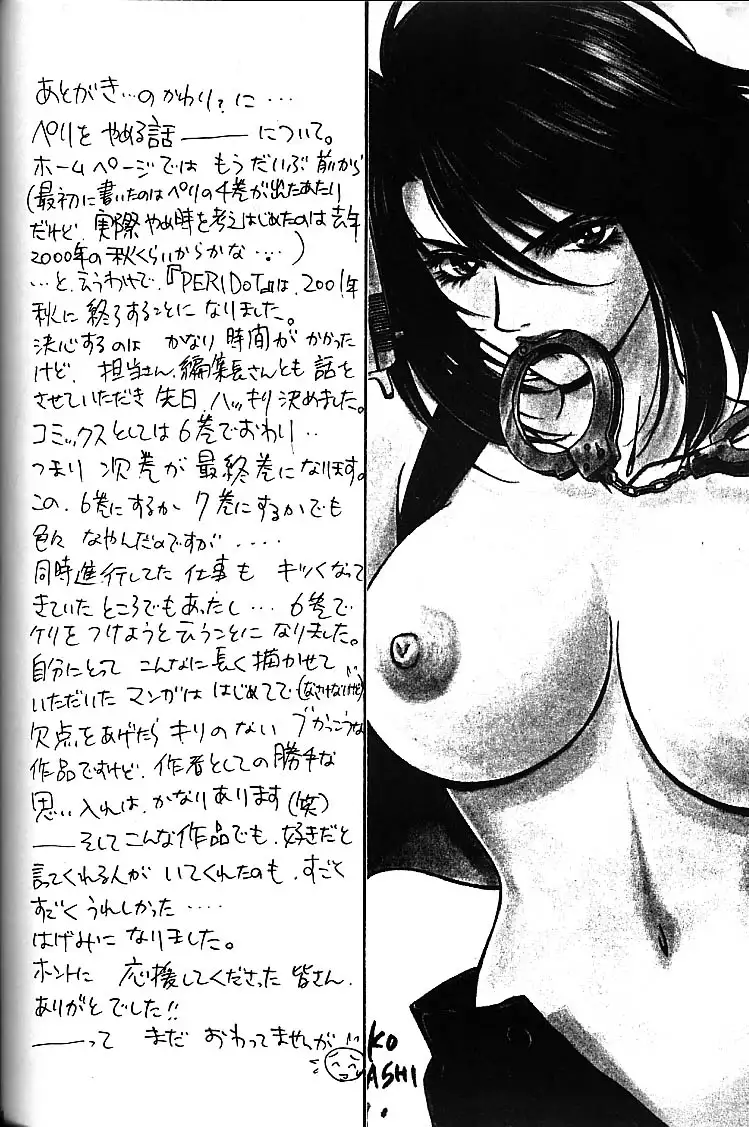 あとがき…のかわり?に…
ペリを やめる話 ―― について。
ホームページでは もうだいぶ前から
(最初に書いたのはペリの4巻が出たあたり
だけど、実際やめ時を考えはじめたのは去年
2000年の秋くらいからかな…)
…と、言うわけで、『PERIDoT』は、2001年
秋に終了することに なりました。
決心するのは かなり時間が かかった
けど、担当さん、編集長さんとも 話を
させていただき 先日、ハッキリ決めました。
コミックスとしては6巻でおわり‥
つまり 次巻が最終巻になります。
この、6巻にするか 7巻にするかでも
色々 なやんだのですが‥‥
同時進行してた 仕事も キツくなって
きていた ところでもあったし… 6巻で
ケリをつけようと言うことに なりました。
自分にとって こんなに長く描かせて
いただいた マンガは はじめてで(なさけないけど)
欠点をあげたら キリのない ブかっこうな
作品ですけど、作者としての勝手な
思い入れは、かなりあります(笑)
――そしてこんな作品でも、好きだと
言ってくれる人が いてくれたのも、すごく
すごく うれしかった‥‥
はげみに なりました。
ホントに 応援してくださった 皆さん、
ありがとでした!!
――って まだ おわってませんが
KO
ASHI